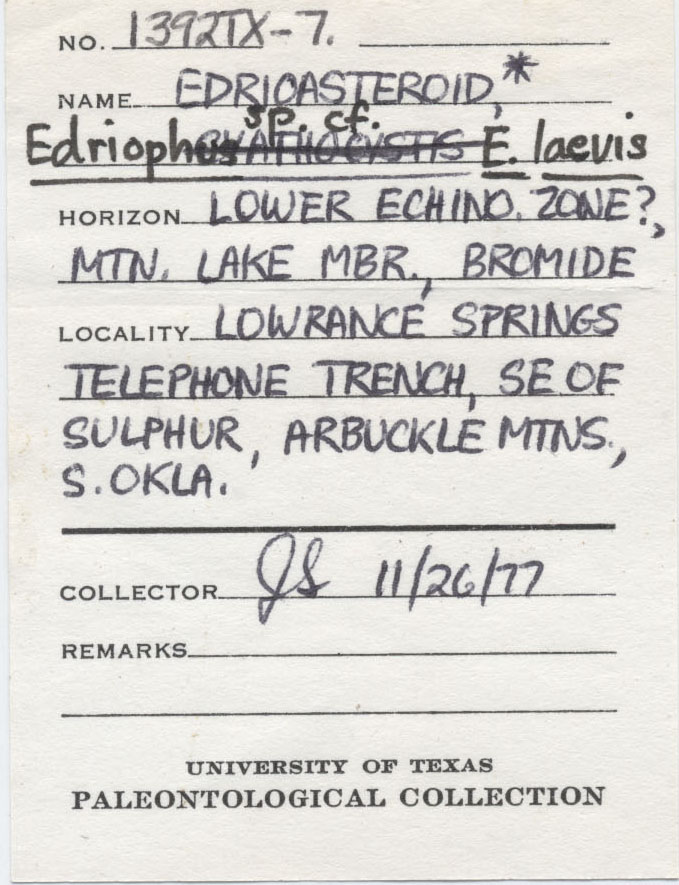 NO. 1392TX-7.
NAME EDRIOASTEROID,*
sp. cf.
Edriophus CYATHOCYSTIS E. laevis
HORIZON LOWER ECHINO. ZONE?,
MTN. LAKE MBR., BROMIDE
LOCALITY LOWRANCE SPRINGS
TELEPHONE TRENCH, SE OF
SULPHUR, ARBUCKLE MTNS.,
S. OKLA.
COLLECTOR JS 11/26/77
REMARKS
UNIVERSITY OF TEXAS
PALEONTOLOGICAL COLLECTION